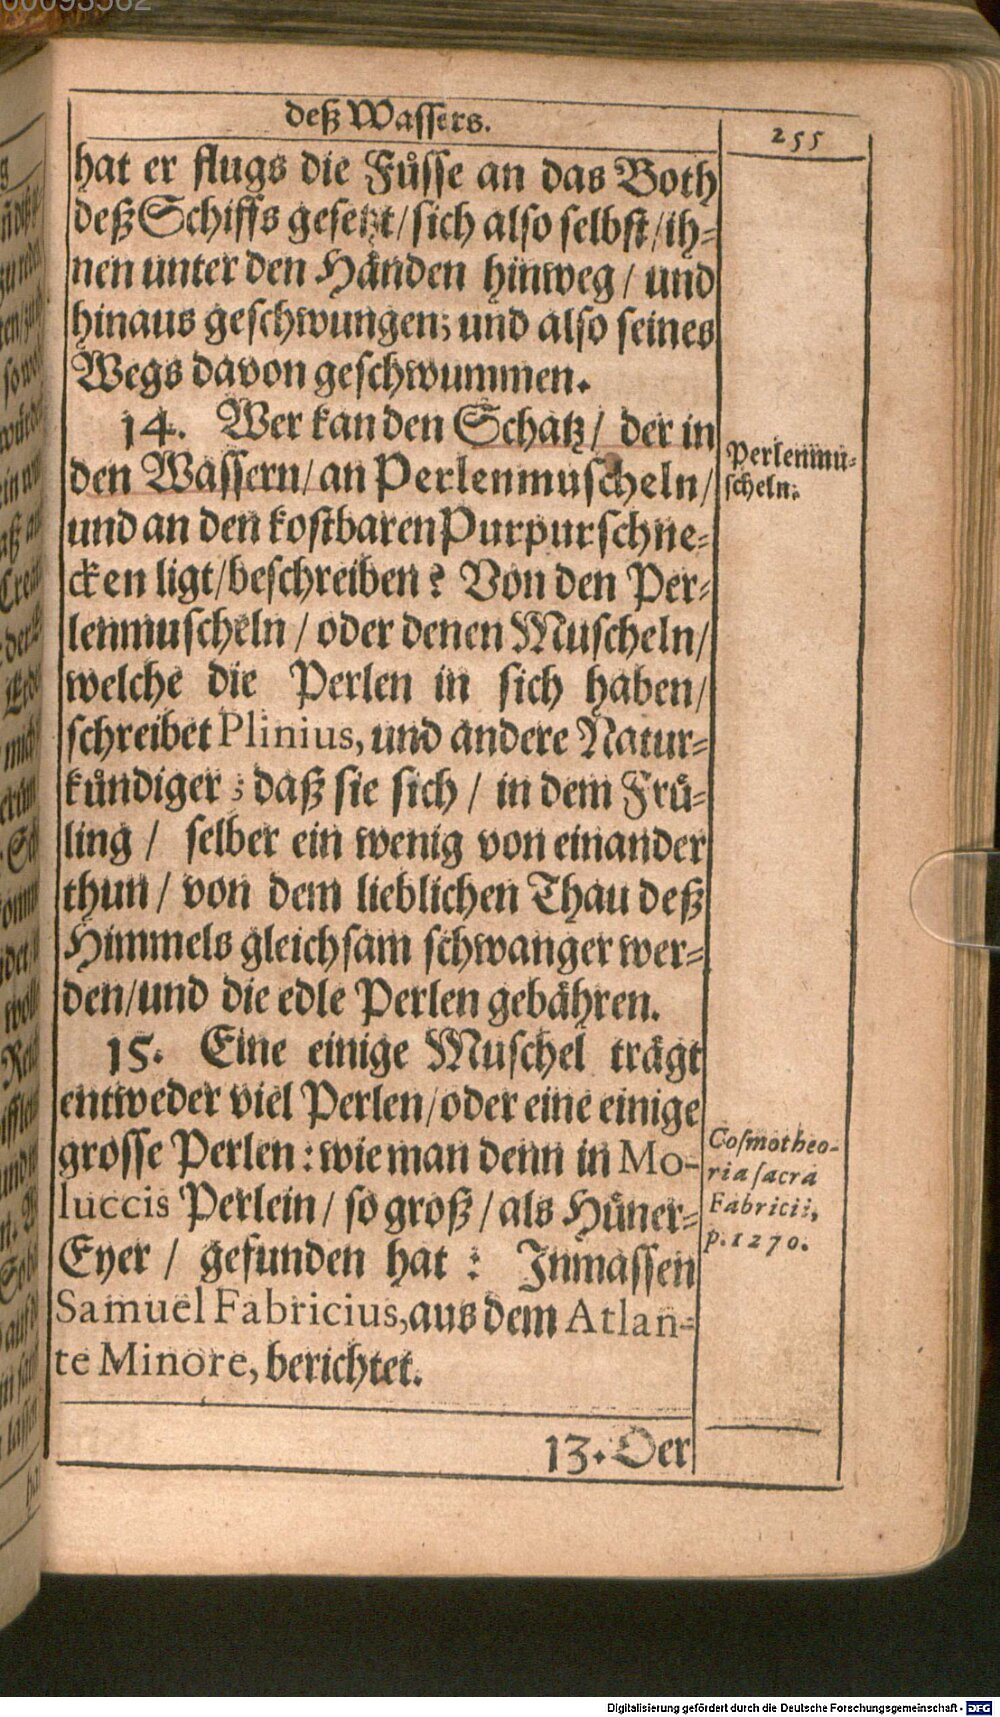 deß Wassers.
255
hat er flugs die Füsse an das Both
deß Schiffs gesetzt/ sich also selbst/ ih-
nen unter den Händen hinweg / und
hinaus geschwungen; und also seines
Wegs davon geschwummen.
14. Wer kan den Schatz/ der in
den Wassern/ an Perlenmuscheln/
und an den kostbaren Purpurschne-
cken ligt/ beschreiben? Von den Per-
lenmuscheln / oder denen Muscheln/
welche die Perlen in sich haben/
schreibet Plinius, und andere Natur-
kündiger; daß sie sich / in dem Frü-
ling / selber ein wenig von einander
thun / von dem lieblichen Thau deß
Himmels gleichsam schwanger wer-
den/ und die edle Perlen gebähren.
15. Eine einige Muschel trägt
entweder viel Perlen/ oder eine einige
grosse Perlen: wie man denn in Mo-
luccis Perlein / so groß / als Hüner-
Eyer / gefunden hat: Inmassen
Samuel Fabricius, aus dem Atlan-
te Minore, berichtet.
13. Der
Perlenmu-
scheln.
Cosmotheo-
ria sacra
Fabricii,
p. 1270.
Digitalisierung gefördert durch die Deutsche Forschungsgemeinschaft - DFG